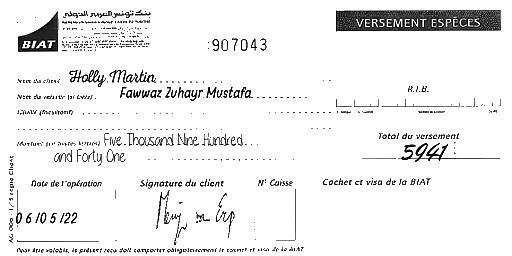 بنك تونس العربي الدولي
BIAT
VERSEMENT ESPÈCES
:907043
Nom du client Holly Martin
Nom du remettant (si tiers) Fawwaz Zuhayr Mustafa
R.I.B.
Libellé (facultatif)
Montant (en toutes lettres) Five Thousand Nine Hundred
and Forty One
Total du versement
5941
Date de l'opération
Signature du client
N° Caisse
Cachet et visa de la BIAT
06/05/22
AG 006 - 1/5 copie Client
Pour être valable, le présent reçu doit comporter obligatoirement le cachet et visa de la BIAT